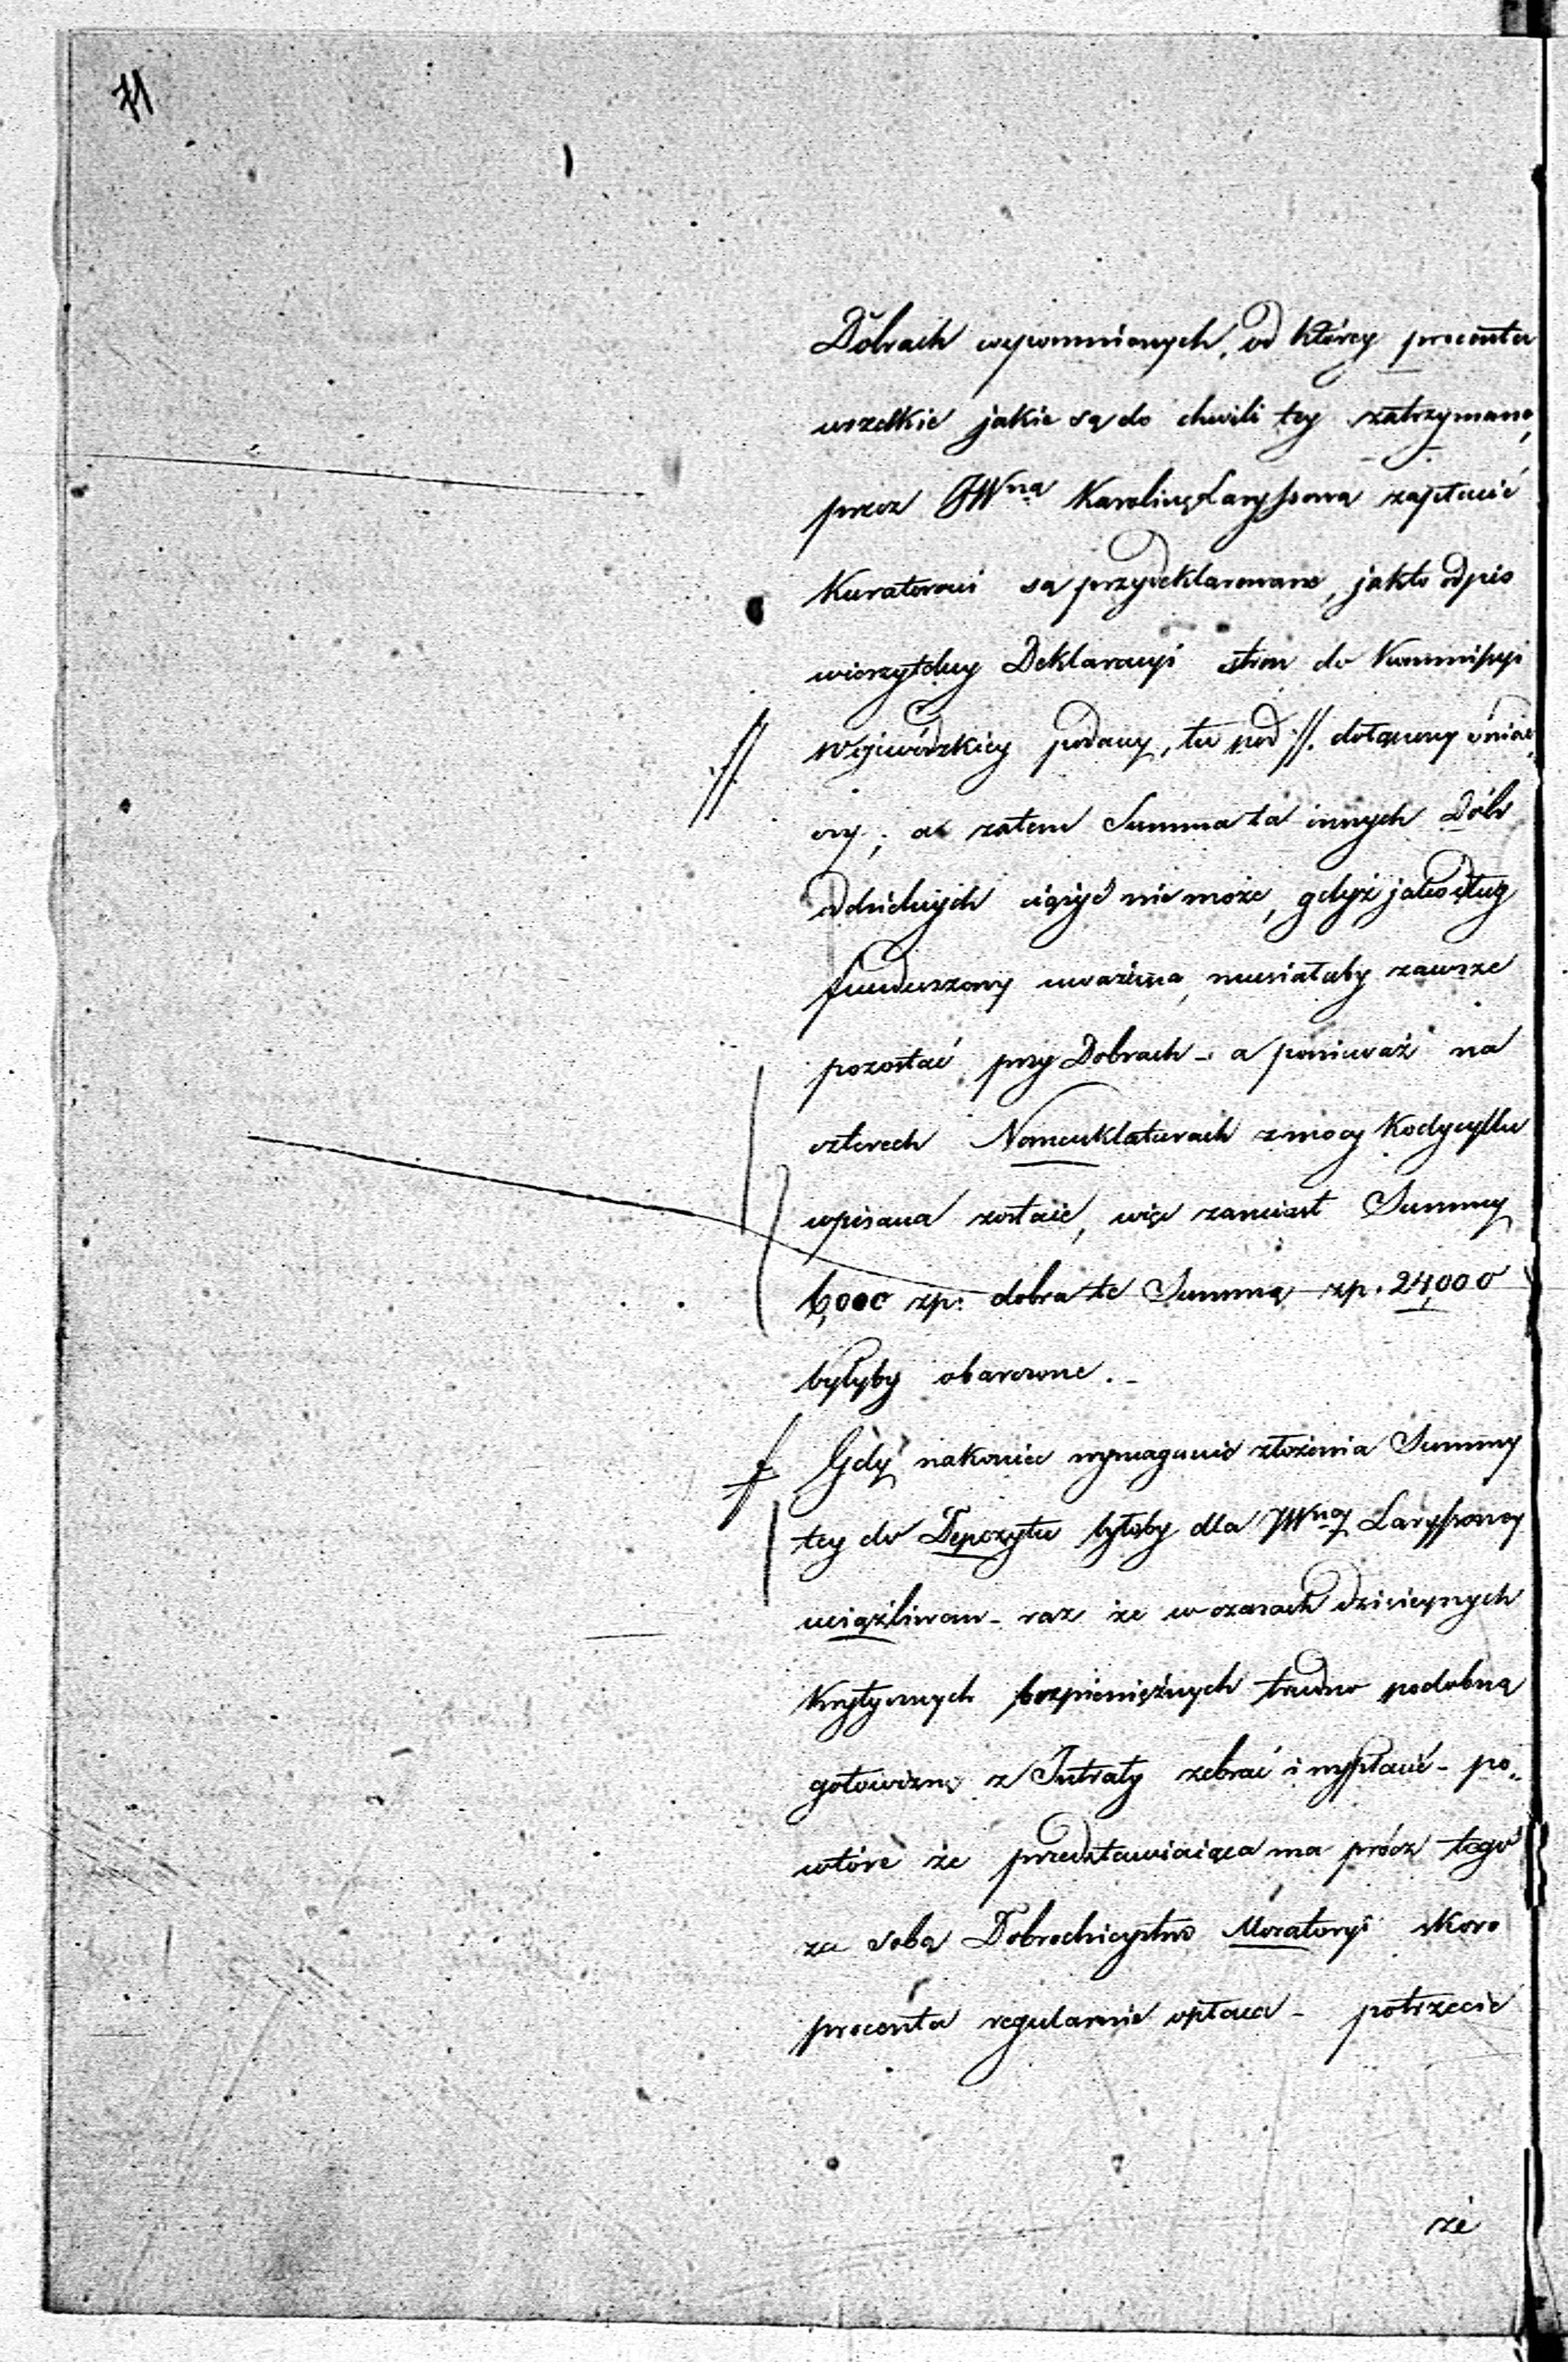 71
Dobrach wspomnionych, od którey procenta
wszelkie jakie są do chwili tey zatrzymane,
przez JWną Karolinę Laryssową zapłacić
Kuratorowi są przydeklarowane, jakto odpis
wierzytelny Deklaracyi stron do Kommissyi
Wojewódzkiey podany, tu pod //. dołączony
; a zatem Summa ta innych Dóbr
oddzielnych ciążyć nie może, gdyż jako dług
funduszowy uważana, musiałaby zawsze
pozostać przy Dobrach - a ponieważ na
czterech Nomenklaturach z mocy Kodycyllu
wpisana zostaie, więc zamiast Summy
6,000 zp: dobra te Summą zp. 24,000
byłyby obarczone. -
Gdy nakoniec wymaganie złożenia Summy
tey do Depozytu byłoby dla JWney Laryssowey
uciążliwem - raz że w czasach dzisieyszych
krytycznych bezpieniężnych trudno podobną
gotowiznę z Intraty zebrać i wypłacić - po„
wtóre że przedstawiaiąca ma prócz tego
za sobą Dobrodzieystwo Moratoryi skoro
procenta regularnie opłaca - potrzecie
że